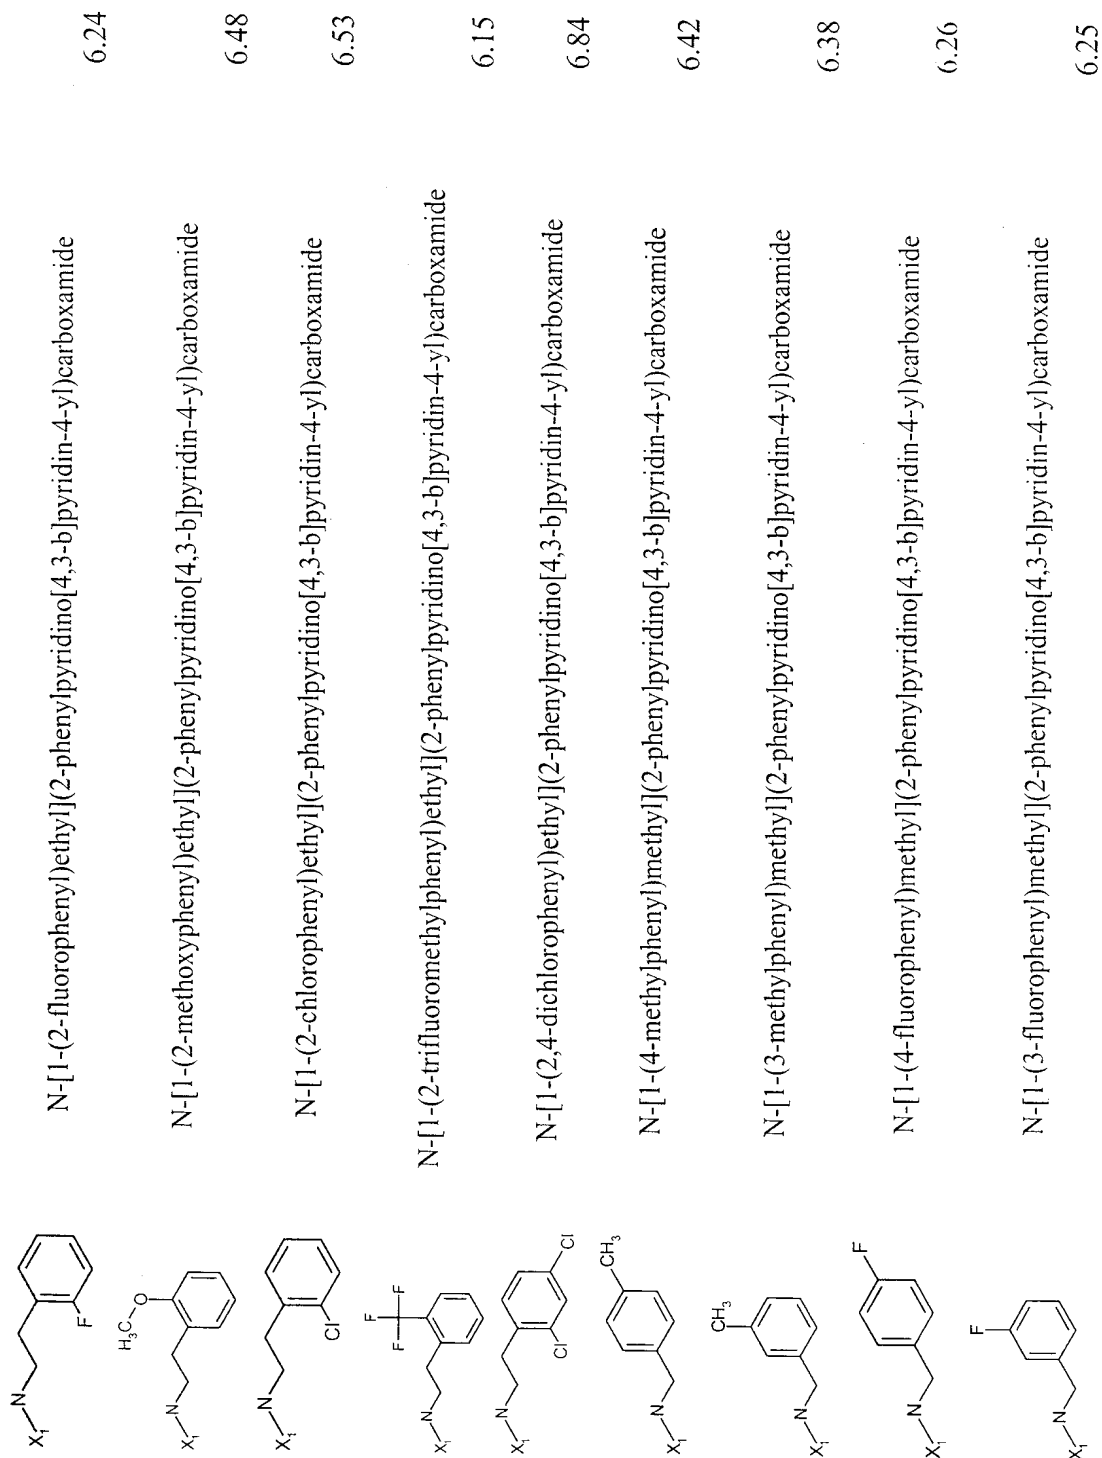 N-[1-(2-fluorophenyl)ethyl](2-phenylpyridino[4,3-b]pyridin-4-yl)carboxamide 6.24
X1 N F
N-[1-(2-methoxyphenyl)ethyl](2-phenylpyridino[4,3-b]pyridin-4-yl)carboxamide 6.48
X1 N H3C O
N-[1-(2-chlorophenyl)ethyl](2-phenylpyridino[4,3-b]pyridin-4-yl)carboxamide 6.53
X1 N Cl
N-[1-(2-trifluoromethylphenyl)ethyl](2-phenylpyridino[4,3-b]pyridin-4-yl)carboxamide 6.15
X1 N F F F
N-[1-(2,4-dichlorophenyl)ethyl](2-phenylpyridino[4,3-b]pyridin-4-yl)carboxamide 6.84
X1 N Cl Cl
N-[1-(4-methylphenyl)methyl](2-phenylpyridino[4,3-b]pyridin-4-yl)carboxamide 6.42
X1 N CH3
N-[1-(3-methylphenyl)methyl](2-phenylpyridino[4,3-b]pyridin-4-yl)carboxamide 6.38
X1 N CH3
N-[1-(4-fluorophenyl)methyl](2-phenylpyridino[4,3-b]pyridin-4-yl)carboxamide 6.26
X1 N F
N-[1-(3-fluorophenyl)methyl](2-phenylpyridino[4,3-b]pyridin-4-yl)carboxamide 6.25
X1 N F